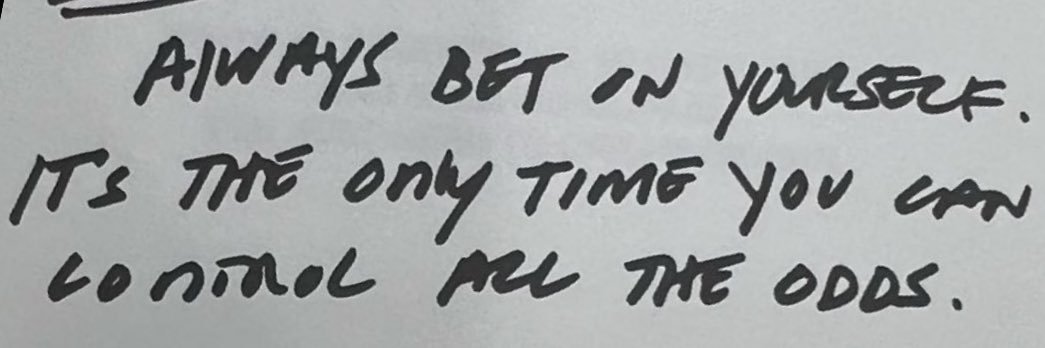 ALWAYS BET ON YOURSELF.
IT'S THE Only TIME YOU CAN
CONTROL ALL THE ODDS.